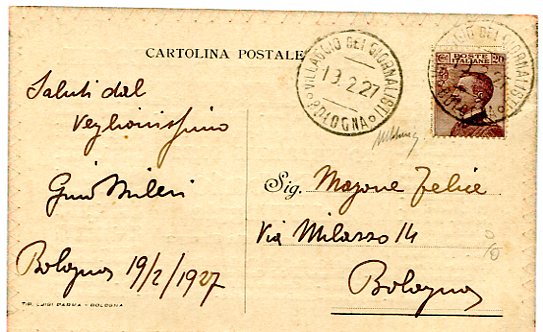 CARTOLINA POSTALE
VILLAGGIO DEI GIORNALISTI
19.2.27
BOLOGNA
POSTE ITALIANE
20
Saluti dal
Veglionissimo
Gino Mileri
Bologna 19/2/1927
Sig. Majone Felice
Via Milazzo 14
Bologna
TIP. LUIGI PARMA - BOLOGNA